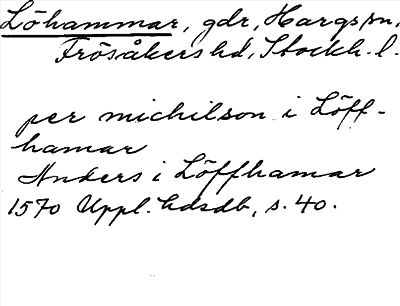 Löhammar, gdr, Hargs sn,
Frösåkers hd, Stockh. l.
per michilson i Löff-
hamar
Anders i Löffhamar
1570 Uppl. hdsdb, s. 40.